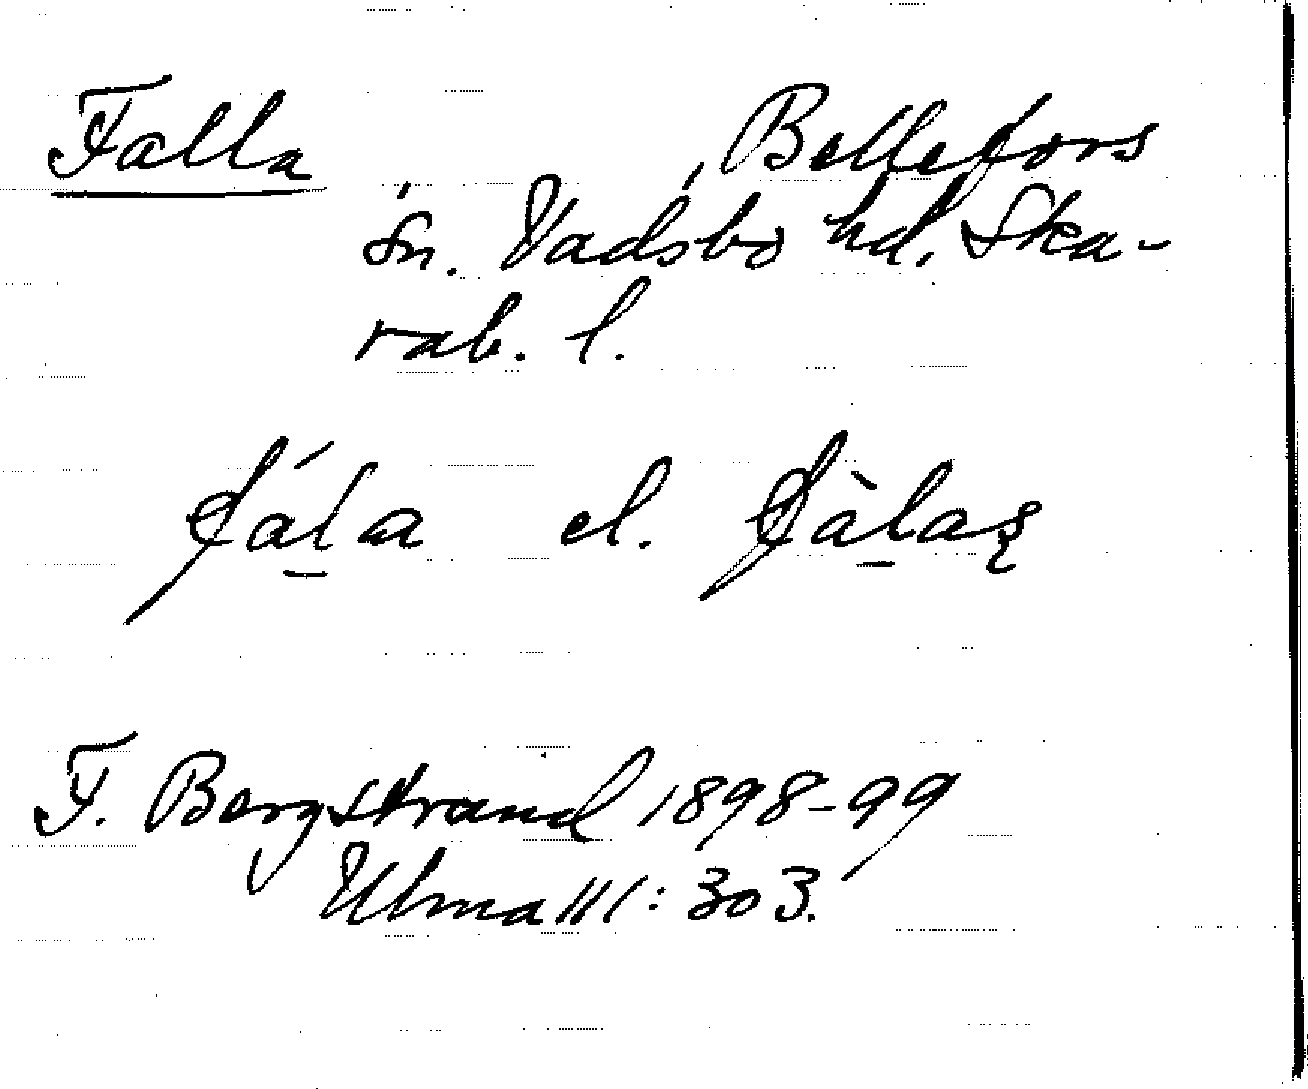 Falla Bellefors
sn. Vadsbo hd. Ska-
rab. l.
fál̠a el. fàl̠aʂ
F. Bergstrand 1898-99
Ulma 111: 303.